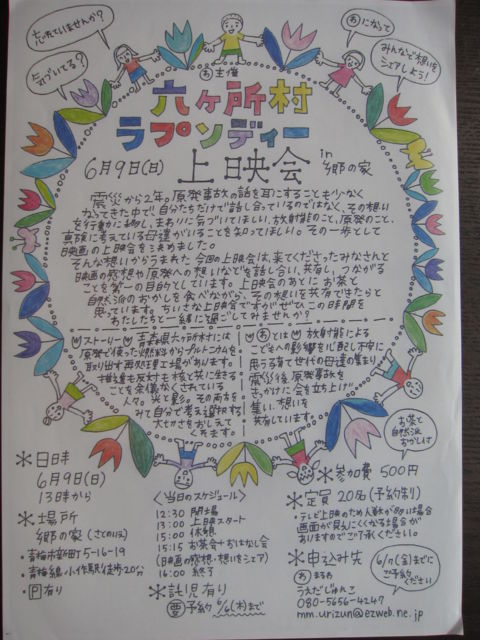 忘れていませんか?
気づいてる?
わになって
みんなで想いを
シェアしよう!
わ主催
六ヶ所村
ラプソディー
6月9日(日) 上映会 in 郷の家
震災から2年。原発事故の話を耳にすることも少なく
なってきた中で、自分たちだけで話し合っているのではなく、その想い
を行動に移し、まわりに気づいてほしい。放射能のこと、原発のこと、
真剣に考えている母達がいることを知ってほしい。その一歩として
映画の上映会を決めました。
そんな想いからうまれた今回の上映会は、来てくださったみなさんと
映画の感想や原発への想いなどを話し合い、共有し、つながる
ことを第一の目的としています。上映会のあとにお茶と
自然派のおかしを食べながら、その想いを共有できたらと
思っています。ちいさな上映会ですがぜひこの時間を
わたしたちと一緒に過ごしてみませんか?
ストーリー
青森県六ヶ所村には
原発で使った燃料からプルトニウムを
取り出す再処理工場があります。
推進も反対も核と共に生きる
ことを余儀なくされている
人々。光と影。その両方を
みて自分で考え選択する
大切さをおしえて
くれます。
わとは
放射能による
こどもへの影響を心配し不安に
思う子育て世代の母達の集まり
震災後、原発事故を
きっかけに会を立ち上げ
集い、想いを
共有しています。
お茶と
自然派
おかし付
*日時
6月9日(日)
13時から
*場所
郷の家(さとのいえ)
・青梅市新町5-16-19
・青梅線小作駅徒歩20分
・P有り
〈当日のスケジュール〉
12:30 開場
13:00 上映スタート
15:00 休憩
15:15 お茶会+おはなし会
(映画の感想・想いをシェア)
16:00 終了
*託児有り
要予約 6/6(木)まで
*参加費 500円
*定員 20名(予約制)
・テレビ上映のため人数が多い場合
画面が見えにくくなる場合が
ありますのでご了承ください。
*申込み先
6/7(金)までに
ご予約
ください
わ まるわ
うえだじゅんこ
080-5656-4247
mm.urizun@ezweb.ne.jp